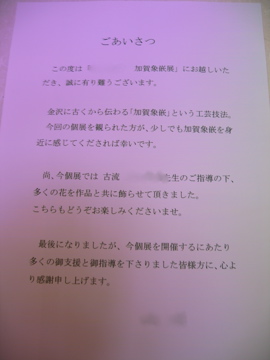 ごあいさつ
この度は 加賀象嵌展」にお越しいた
だき、誠に有り難うございます。
金沢に古くから伝わる「加賀象嵌」という工芸技法。
今回の個展を観られた方が、少しでも加賀象嵌を身
近に感じてくだされば幸いです。
尚、今個展では 古流 先生のご指導の下、
多くの花を作品と共に飾らせて頂きました。
こちらもどうぞお楽しみくださいませ。
最後になりましたが、今個展を開催するにあたり
多くの御支援と御指導を下さりました皆様方に、心よ
り感謝申し上げます。